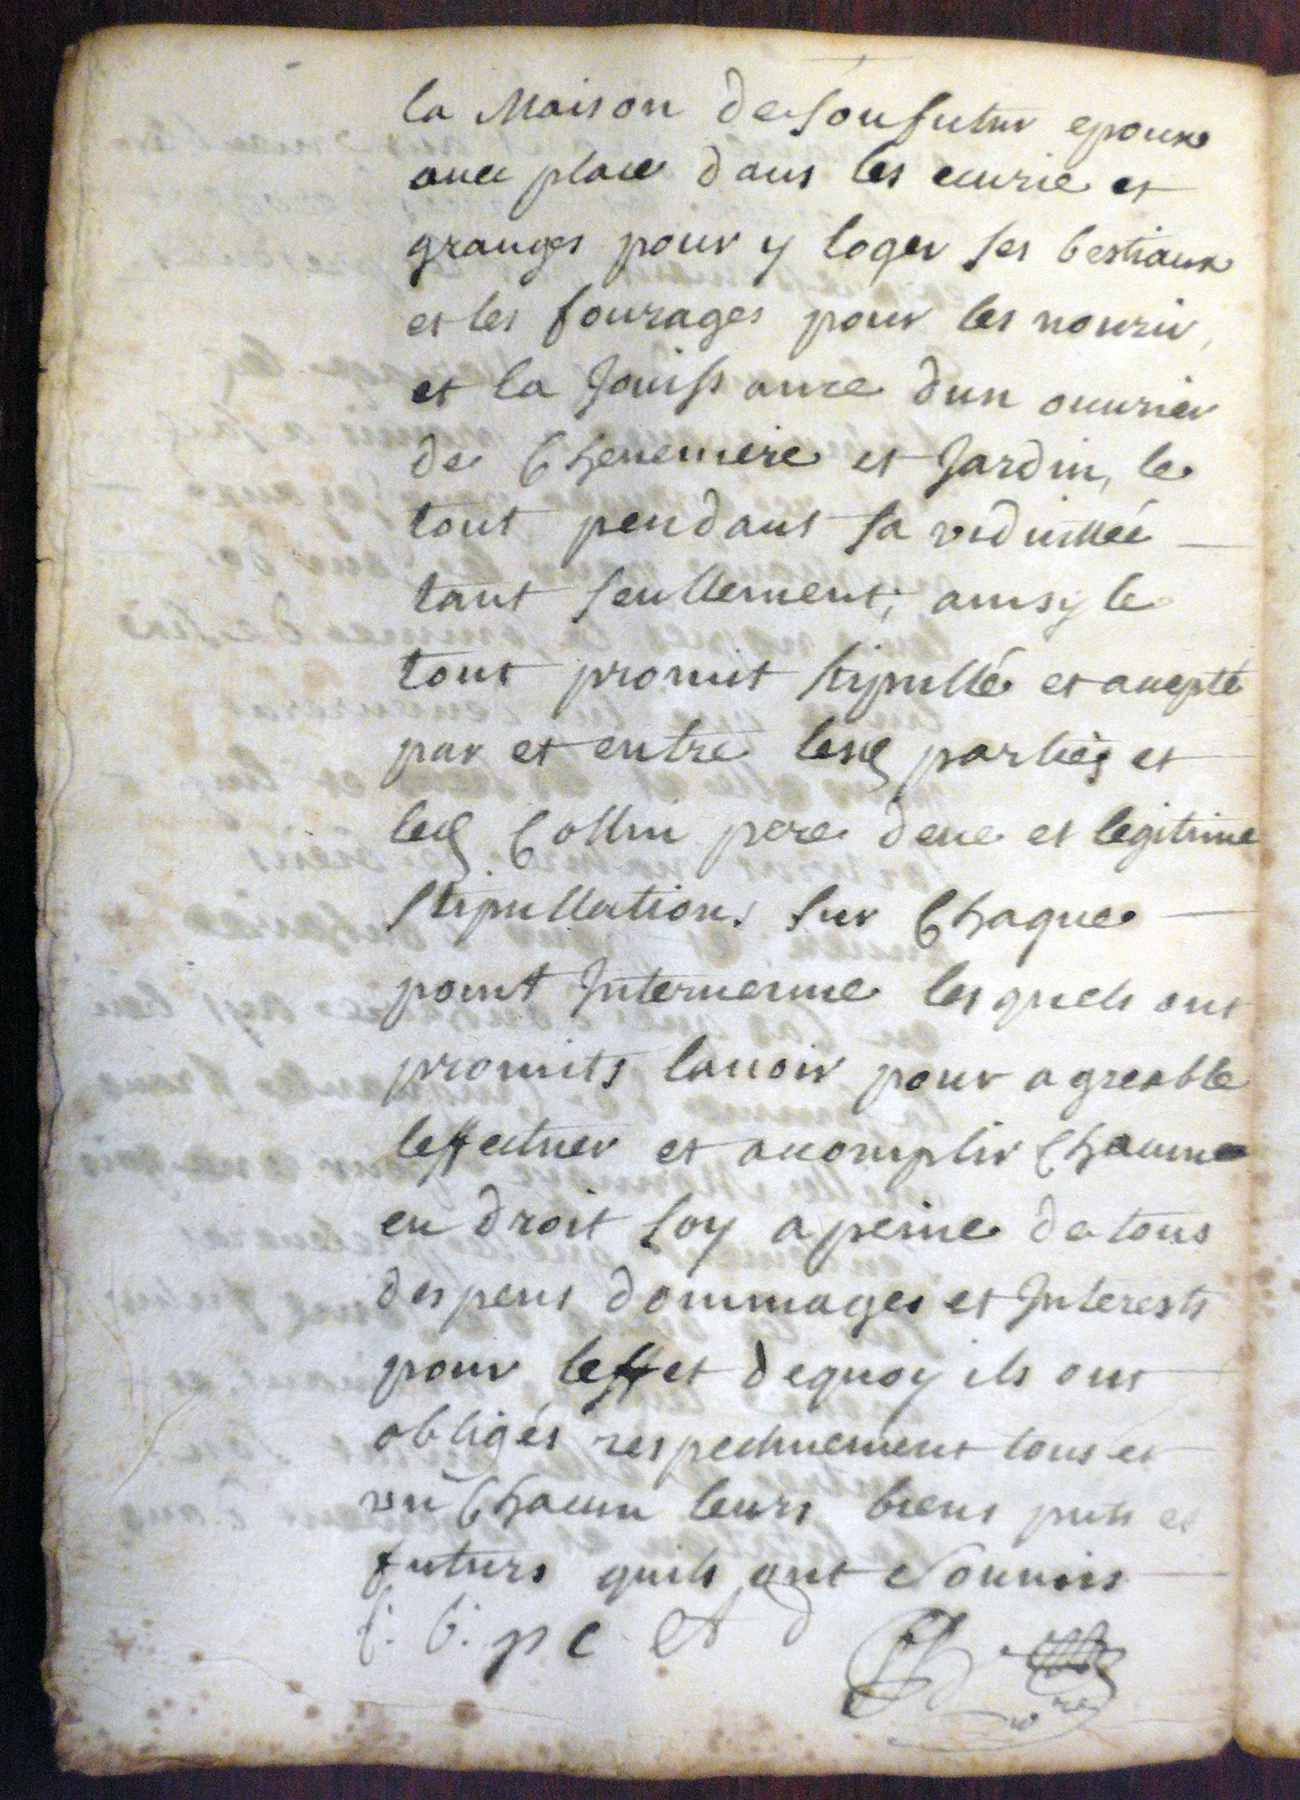 la Maison de son futur epoux
avec place dans les ecurie et
granges pour y loger ses bestiaux
et les fourages pour les nourir,
et la Jouissance dun ouvrier
de Cheneviere et Jardin, le
tout pendant sa viduittée
tant seullement; ainsy le
tout promit stipullé et accepté
par et entre lesd parties et
led Collin pere deue et legitime
stipullation sur Chaque
point Intervenue lesquels ont
promits lavoir pour agreable
leffectuer et accomplir Chacune
en droit soy a peine de tous
despens dommages et Interests
pour leffet dequoy ils ont
obligés respectivement tous et
un Chacun leurs biens puts et
futurs quils ont soumis
f. C. p c et